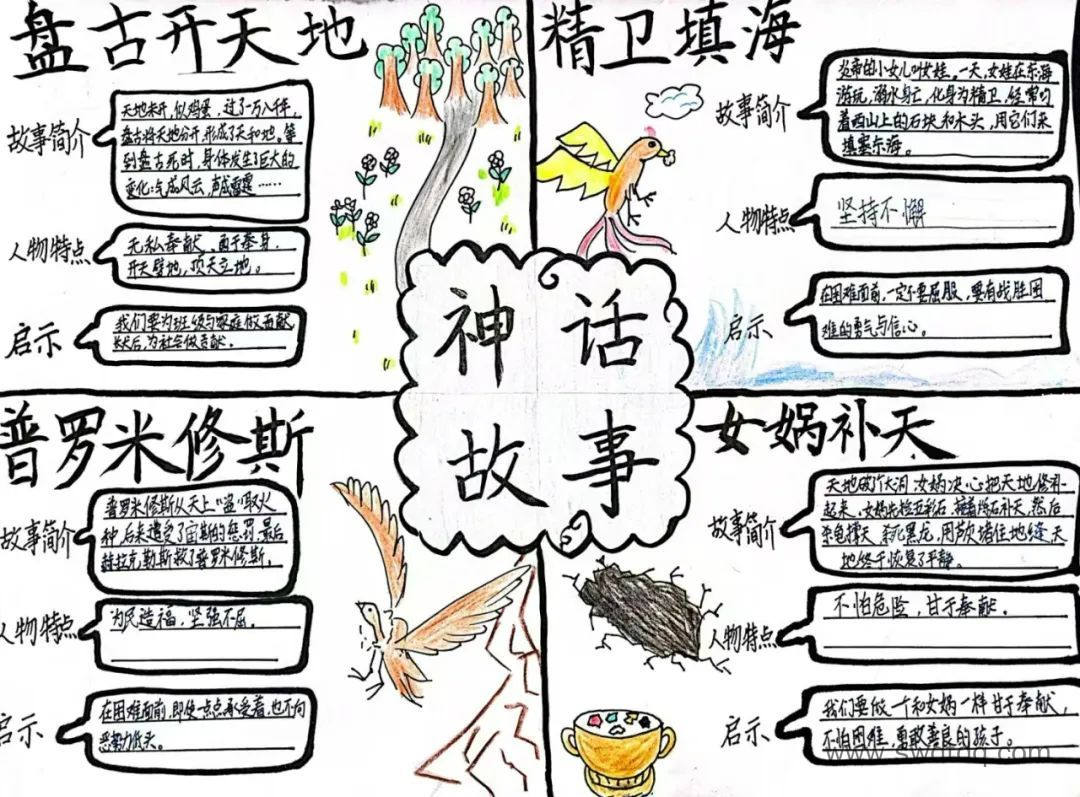 盘古开天地
故事简介
天地未开,似鸡蛋,过了一万八千年,
盘古将天地分开,形成了天和地。等
到盘古死时,身体发生了巨大的
变化:气成风云,声成雷霆……
人物特点
无私奉献,勇于奉身,
开天辟地,顶天立地。
启示
我们要为班级与家庭做贡献
然后,为社会做贡献。
精卫填海
故事简介
炎帝的小女儿叫女娃,一天,女娃在东海
游玩,溺水身亡,化身为精卫,经常叼
着西山上的石块和木头,用它们来
填塞东海。
人物特点
坚持不懈
启示
在困难面前,一定不要屈服,要有战胜困
难的勇气与信心。
神话
故事
普罗米修斯
故事简介
普罗米修斯从天上“盗”取火
种,后来遭受了宙斯的惩罚,最后
赫拉克勒斯救了普罗米修斯。
人物特点
为民造福,坚强不屈。
启示
在困难面前,即使一点点承受着,也不向
恶势力低头。
女娲补天
故事简介
天地破了个大洞,女娲决心把天地修补
起来,女娲先捡五彩石,接着炼石补天,然后
杀龟撑天,杀死黑龙,用芦灰堵住地缝,天
地终于恢复了平静。
人物特点
不怕危险,甘于奉献。
启示
我们要做一个和女娲一样甘于奉献,
不怕困难,勇敢善良的孩子。